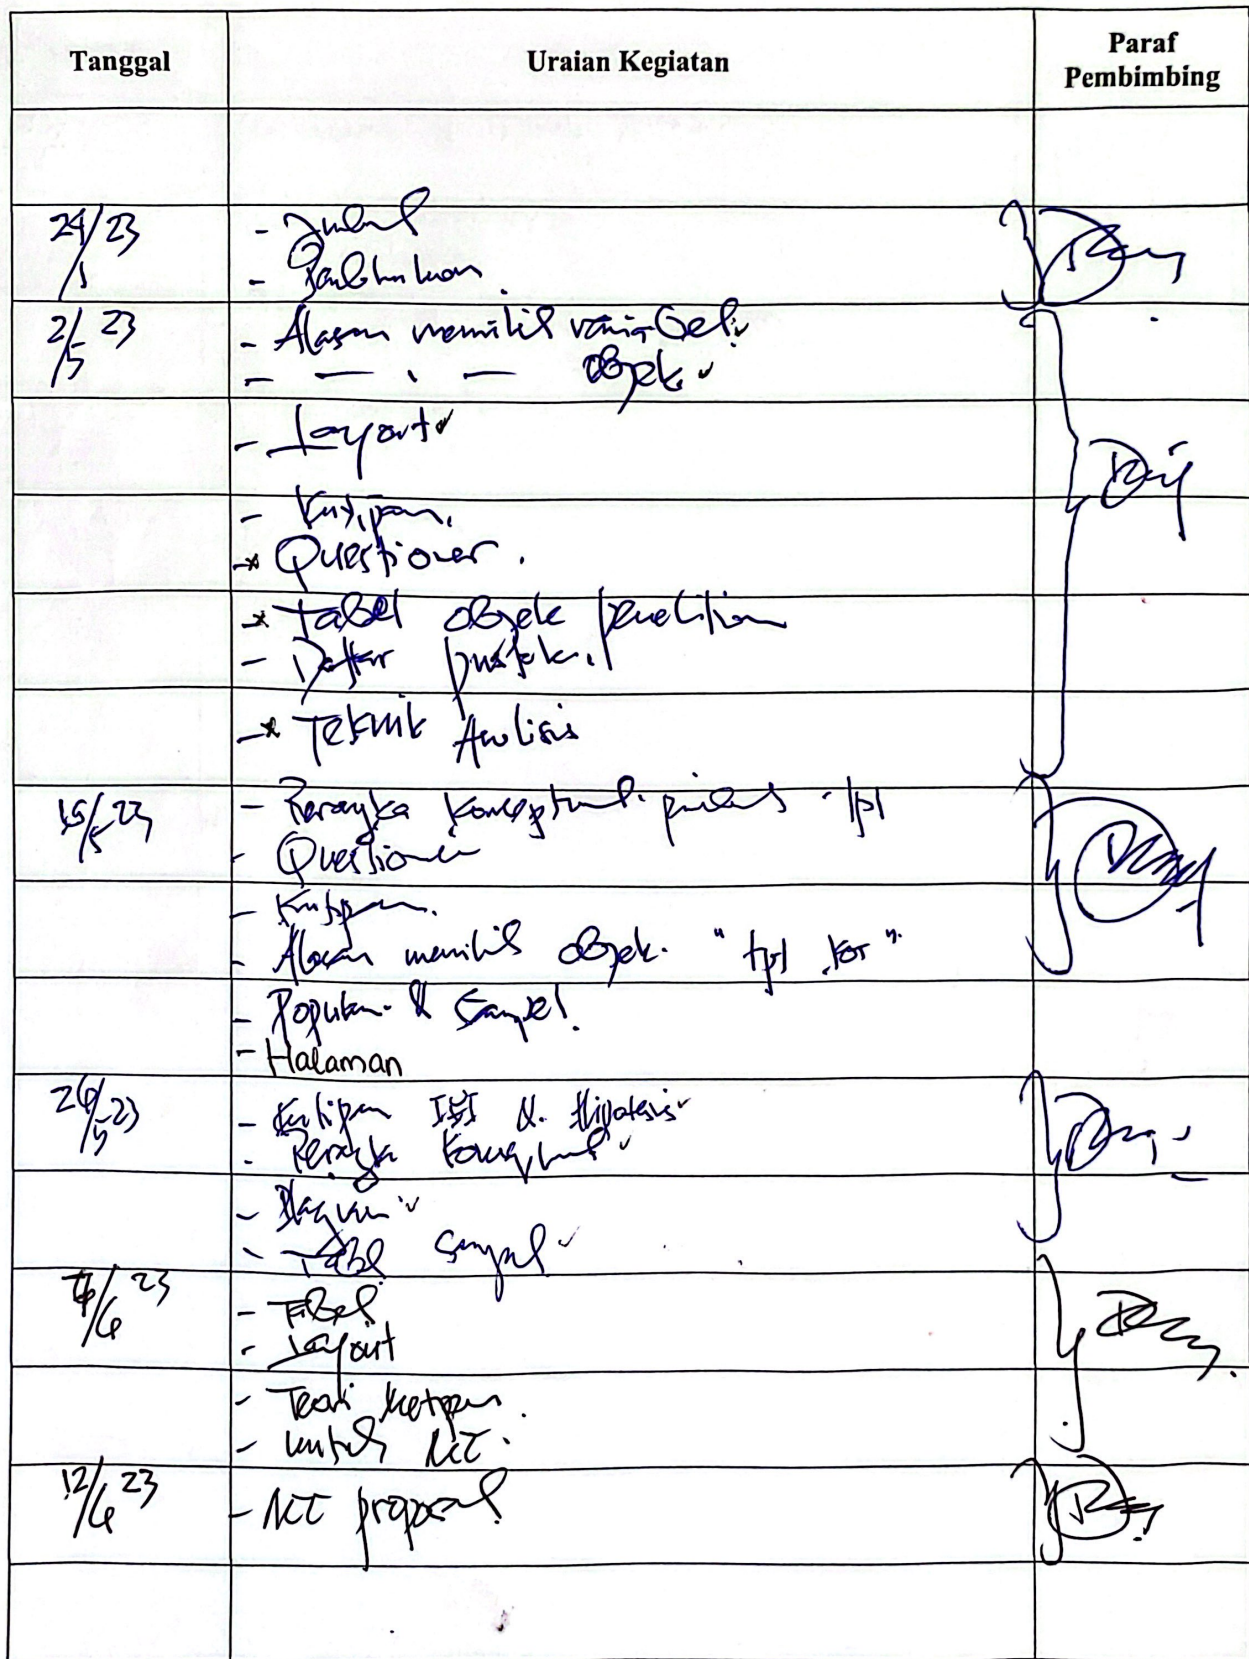 Tanggal Uraian Kegiatan Paraf Pembimbing
24/1 23 - Judul
-
2/5 23 - Alasan memilih variabel ✓
- — , — objek ✓
- Layout ✓
- Kutipan.
-* Questioner.
-* Tabel objek penelitian
- Daftar pustaka.
-* Teknik Analisis
15/5 23 - Kerangka Konseptual
- Questioner
- Kutipan.
- Alasan memilih objek. "
- Populasi & Sampel.
- Halaman
26/5 23 - Kutipan & Hipotesis ✓
- Kerangka Konseptual ✓
- ✓
- Tabel Sampel ✓
/6 23 - Tabel
- Layout
- Teori
- ACC.
12/6 23 - ACC proposal